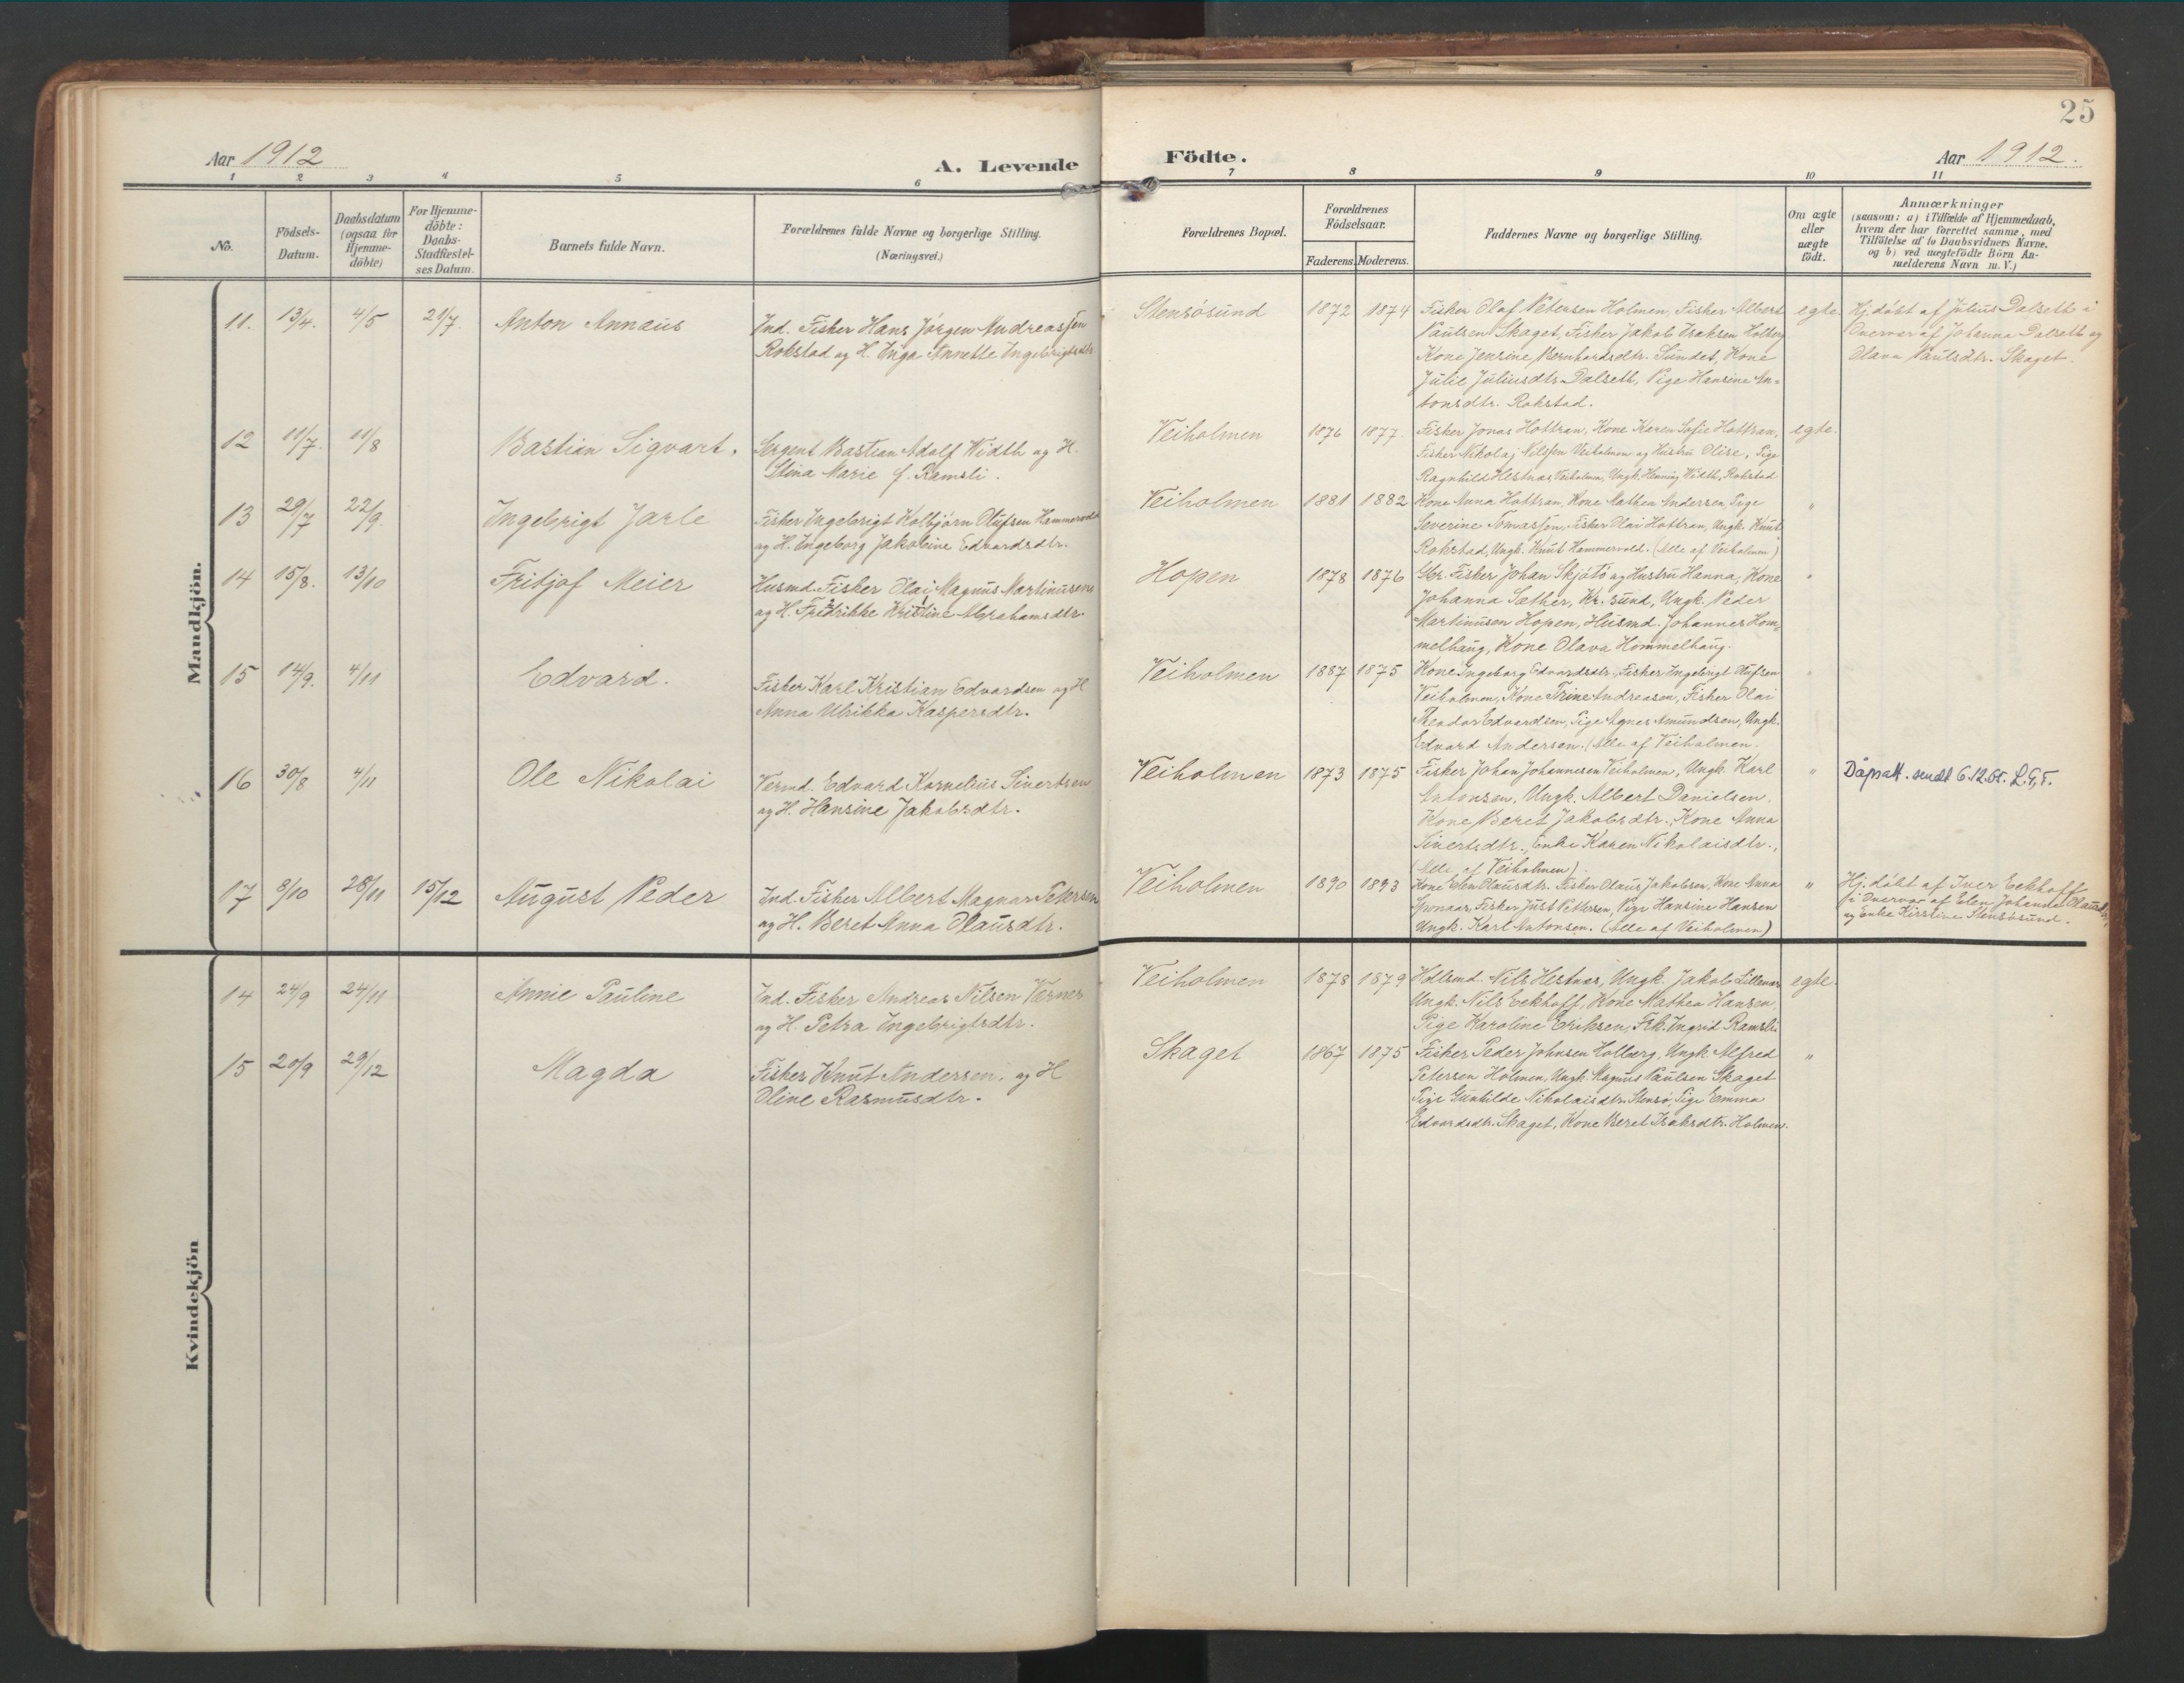 25
Aar 1912
A. Levende Födte.
Aar 1912.
1 2 3 4 5 6 7 8 9 10 11
No.
Födsels-Datum.
Daabsdatum (ogsaa for Hjemme-döbte)
For Hjemme-döbte: Daabs-Stadfæstel-ses Datum.
Barnets fulde Navn.
Forældrenes fulde Navne og borgerlige Stilling.
(Næringsvei.)
Forældrenes Bopæl.
Forældrenes Födselsaar.
Faderens. Moderens.
Faddernes Navne og borgerlige Stilling.
Om ægte eller uægte födt.
Anmærkninger
(saasom: a) i Tilfælde af Hjemmedaab,
hvem der har forrettet samme, med
Tilföielse af to Daabsvidners Navne.
og b) ved uægtefödte Börn An-
melderens Navn m. V.)
Mandkjön.
11. 13/4. 4/5 21/7. Anton Annaus
Ind. Fisker Hans Jørgen Andreassen
Rokstad og H. Inga Annette Ingebrigtsdtr.
Stensösund 1872 1874
Fisker Olaf Petersen Holmen, Fisker Albert
Paulsen Skaget, Fisker Jakob Isaksen Holberg
Kone Jensine Bernhardsdtr. Sundet, Kone
Julie Juliusdtr. Dalseth, Pige Hansine An-
tonsdtr. Rokstad.
egte.
Hj. döbt af Julius Dalseth i
Overvær af Johanna Dalseth og
Olava Paulsdtr. Skaget.
12 11/7. 11/8 Bastian Sigvart.
Sergent Bastian Adolf Width og H.
Stina Marie f. Ramsli.
Veiholmen 1876 1877.
Fisker Jonas Hottran, Kone Karen Sofie Hottran,
Fisker Nikolaj Nilssen Veiholmen og Hustru Olise, Pige
Ragnhild Hestnæs Veiholmen, Ungk. Henning Width, Rokstad
egte.
13 29/7 22/9. Ingebrigt Jarle
Fisker Ingebrigt Kolbjörn Olufsen Hammervold
og H. Ingeborg Jakobine Edvardsdtr.
Veiholmen 1881 1882
Kone Anna Hottran, Kone Mathea Andersen, Pige
Severine Tomassen, Fisker Olai Hottran, Ungk. Knut
Rokstad, Ungk. Knut Hammervold. (Alle af Veiholmen)
"
14 15/8. 13/10 Fritjof Meier
Husmd. Fisker Olai Magnus Martinusen
og H. Fredrikke Kristine Abrahamsdtr.
Hopen 1878 1876
Fisker Johan Skjötö og Hustru Hanna, Kone
Johanna Sæther, Kr. sund, Ungk. Peder
Martinusen Hopen, Husmd. Johannes Hom-
melhaug, Kone Olava Hommelhaug.
"
15 14/9. 4/11 Edvard.
Fisker Karl Kristian Edvardsen og H
Anna Ulrikka Kaspersdtr.
Veiholmen 1887 1875
Kone Ingeborg Edvardsdtr., Fisker Ingebrigt Olufsen
Veiholmen, Kone Trine Andreasen, Fisker Olai
Teodor Edvardsen, Pige Agnes Amundsen, Ungk.
Edvard Andersen. (Alle af Veiholmen.
"
16 30/8 4/11 Ole Nikolai
Vermd. Edvard Kornelius Sivertsen
og H. Hansine Jakobsdtr.
Veiholmen 1873 1875
Fisker Johan Johannesen Veiholmen, Ungk. Karl
Antonsen, Ungk. Albert Danielsen.
Kone Beret Jakobsdtr., Kone Anna
Sivertsdtr., Enke Karen Nikolaisdtr.,
(Alle af Veiholmen).
"
Dåpsatt. sendt 6.12.65. L.G.F.
17 8/10 28/11 15/12 August Peder
Ind. Fisker Albert Magnar Petersen
og H. Beret Anna Olausdtr.
Veiholmen 1890 1893
Kone Elen Olausdtr. Fisker Olaus Jakobsen, Kone Anna
Sponaas, Fisker Just Pettersen, Pige Hansine Hansen
Ungk. Karl Antonsen. (Alle af Veiholmen)
"
Hj. döbt af Iver Eckhoff
i Overvær af Elen Johanna Olausdtr.
og Enke Kirstine Stensösund.
Kvindekjön
14 24/9 24/11 Annie Pauline
Ind. Fisker Andreas Nilsen Værnes
og H. Petra Ingebrigtsdtr.
Veiholmen 1878 1879
Nils Hestnæs, Ungk. Jakob Lillenæs
Ungk. Nils Eckhoff, Kone Mathea Hansen
Pige Karoline Eriksen, Frk. Ingrid Ramsli
egte.
15 20/9 29/12 Magda
Fisker Knut Andersen. og H
Oline Rasmusdtr.
Skaget 1867 1875
Fisker Peder Johnsen Holberg, Ungk. Alfred
Petersen Holmen, Ungk. Magnus Paulsen Skaget
Pige Gunhilde Nikolaisdtr. Stensö, Pige Emma
Edvardsdtr. Skaget, Kone Beret Isaksdtr. Holmen.
"